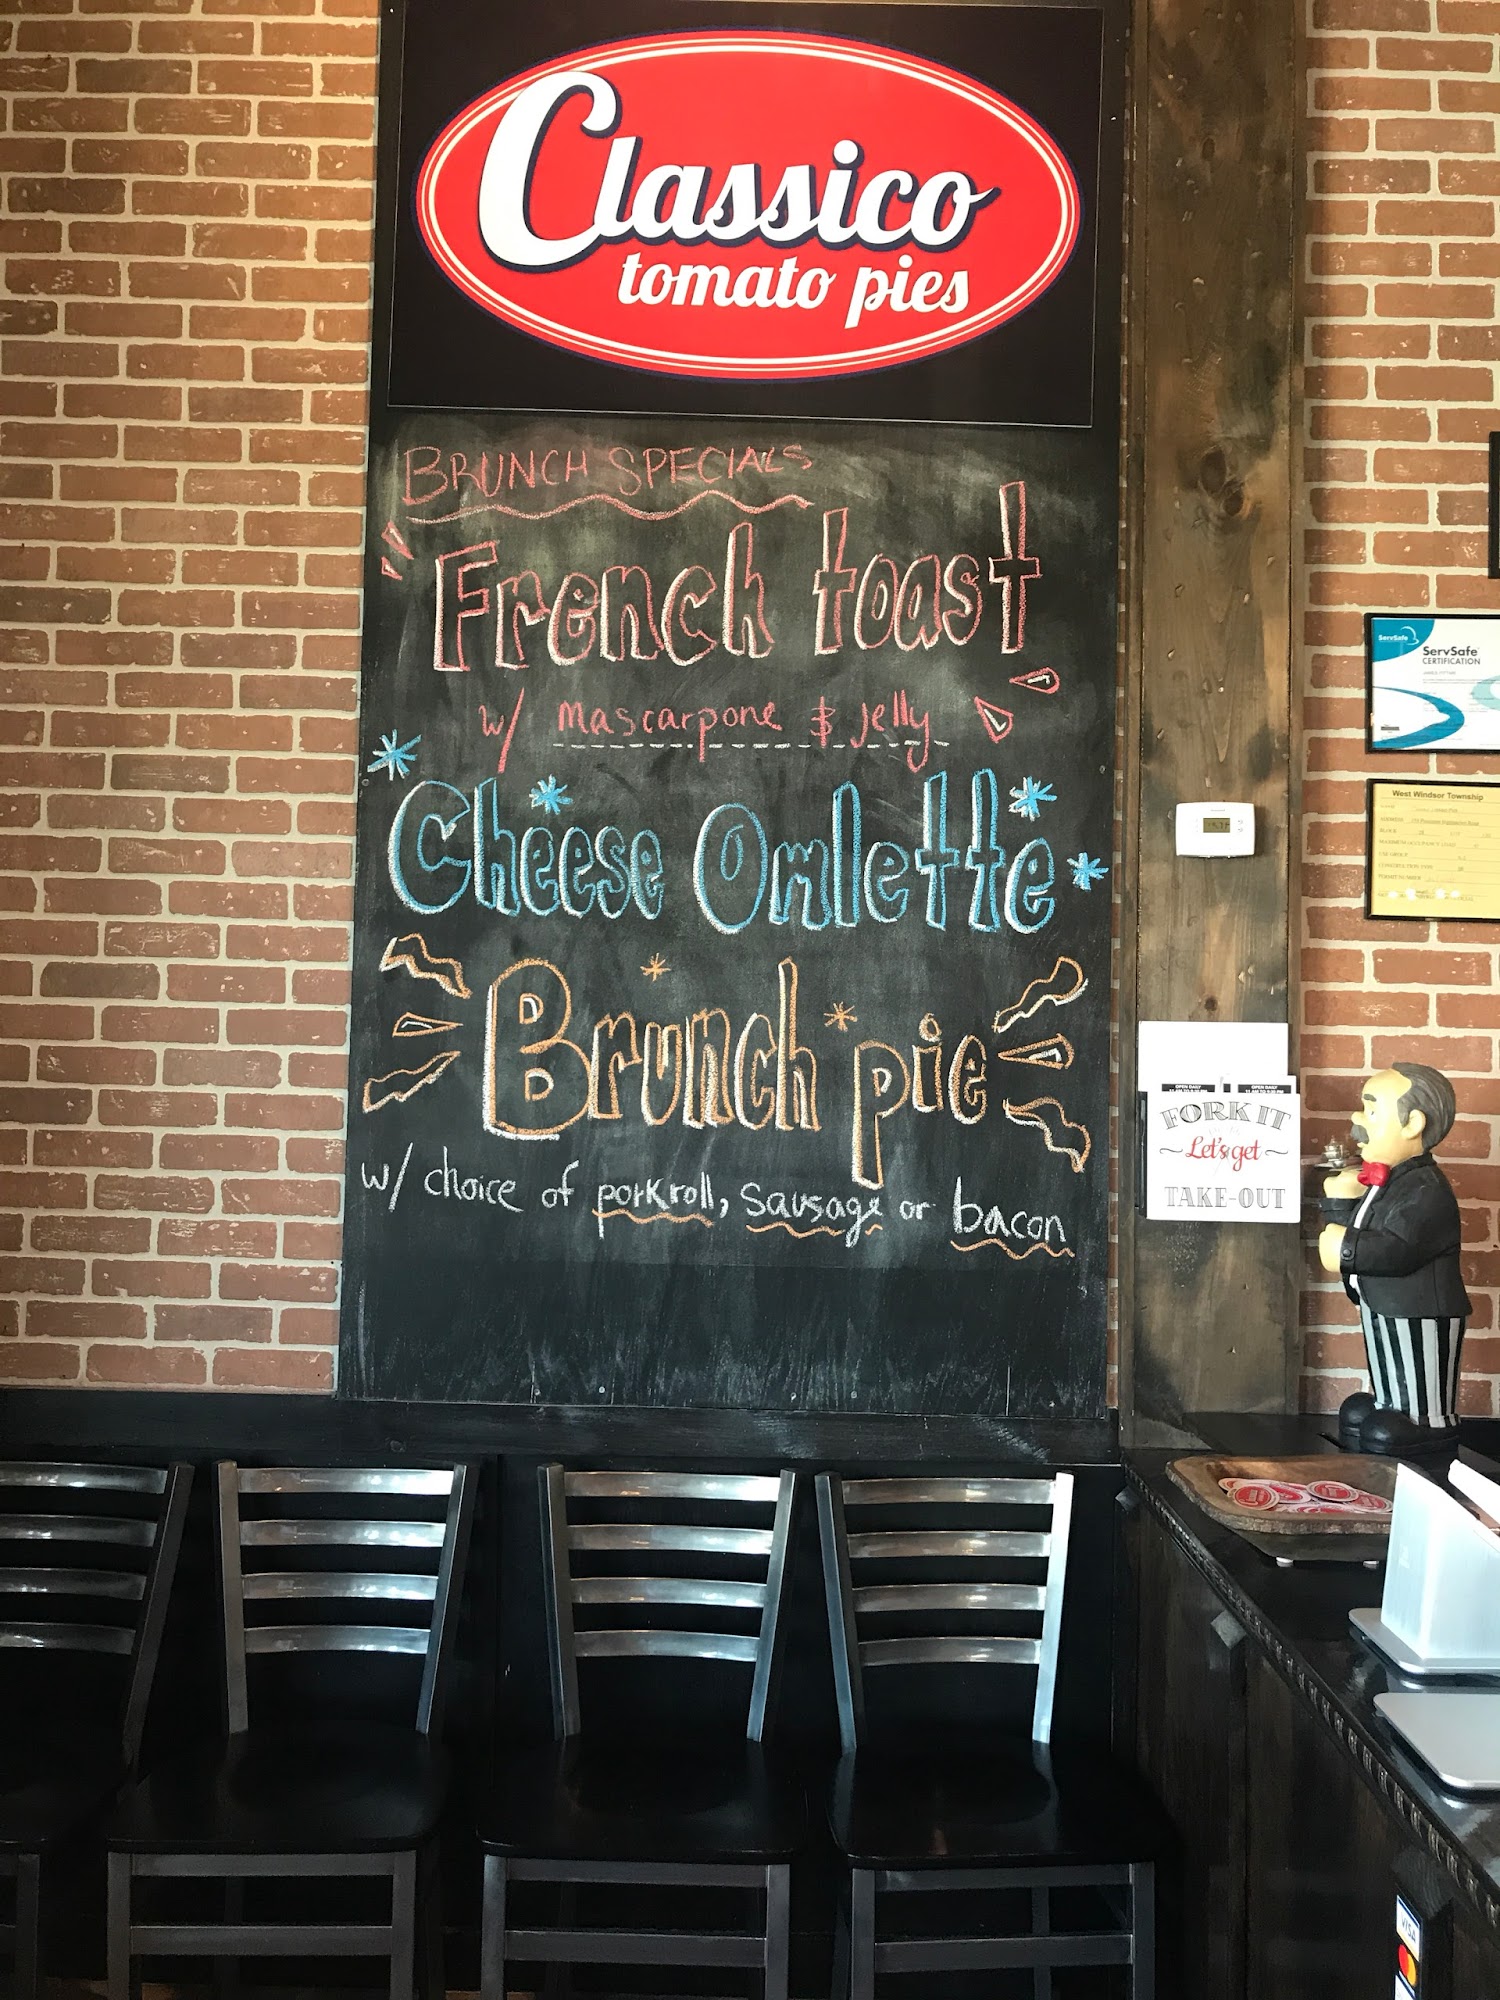 Classico
tomato pies
BRUNCH SPECIALS
French toast
w/ mascarpone & jelly
Cheese Omlette
Brunch pie
w/ choice of porkroll, sausage or bacon
ServSafe
ServSafe
CERTIFICATION
West Windsor Township
OPEN DAILY
OPEN DAILY
FORK IT
Let's get
TAKE-OUT
VISA